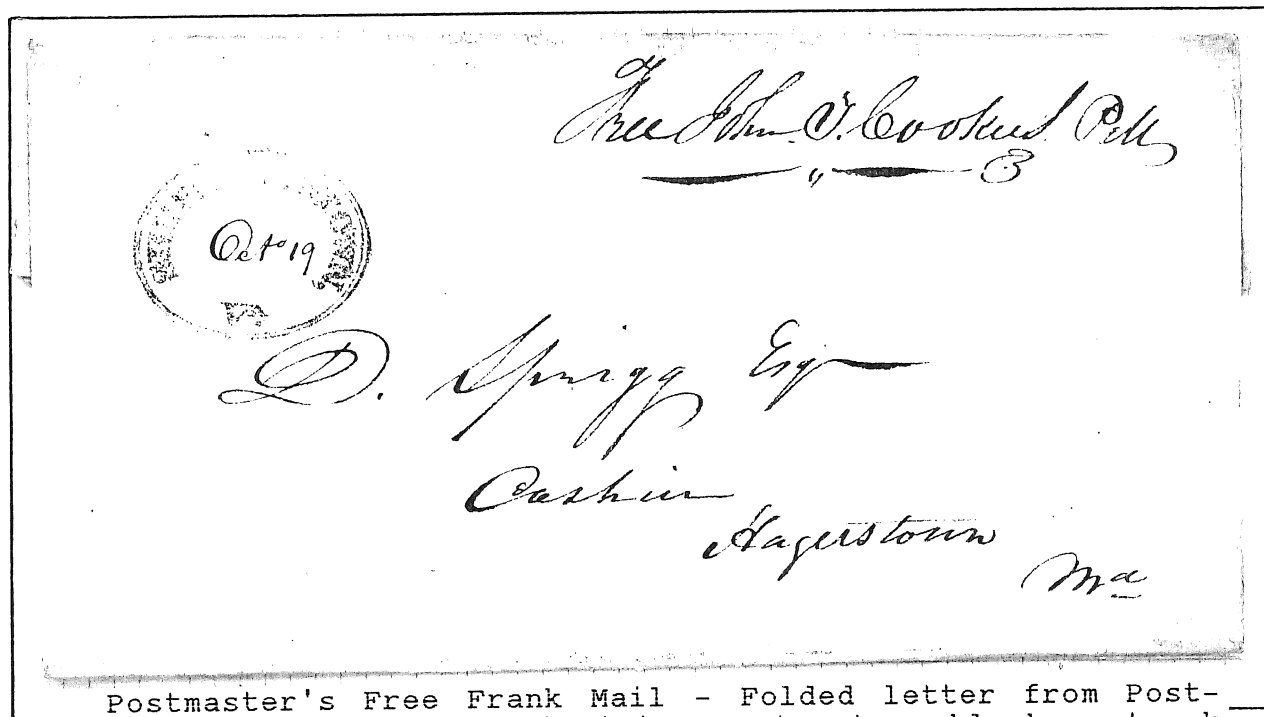 Free John. T. Cookus P.M.
Oct° 19
Va
D. Sprigg Esqr
Cashier
Hagerstown
Md
Postmaster's Free Frank Mail - Folded letter from Post-